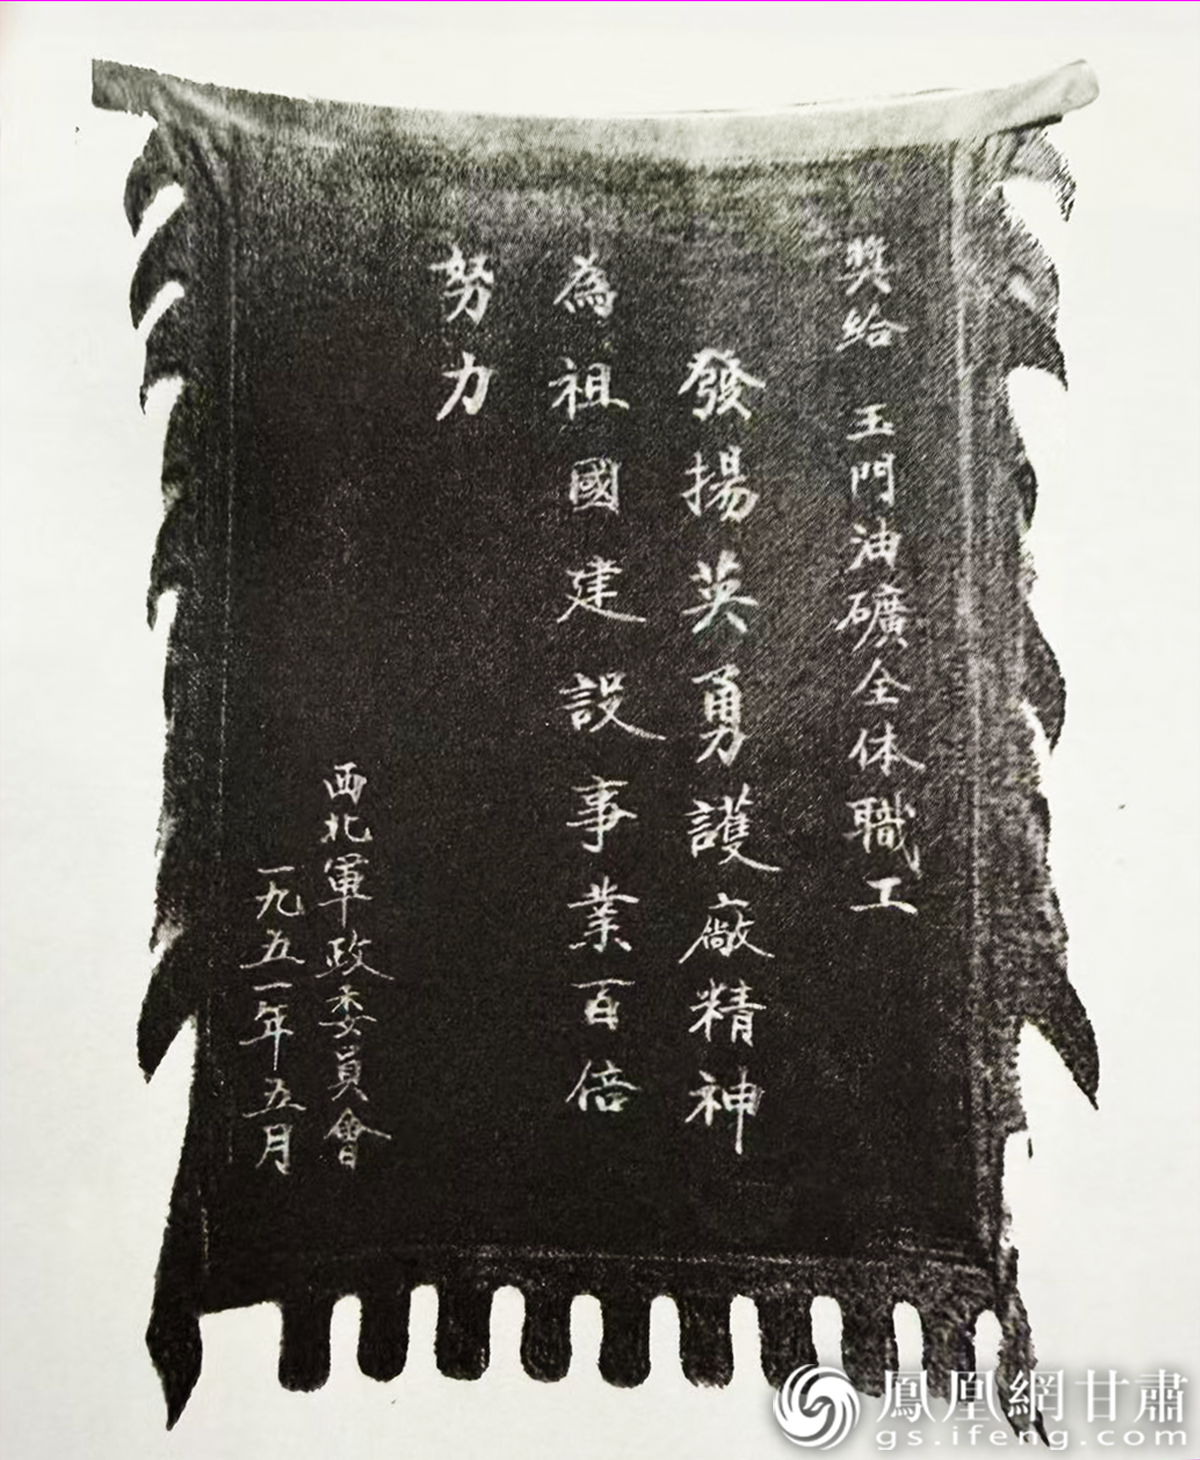 獎給 玉門油礦全体職工
發揚英勇護廠精神
為祖國建設事業百倍
努力
西北軍政委員會
一九五一年五月
鳳凰網甘肅
gs.ifeng.com